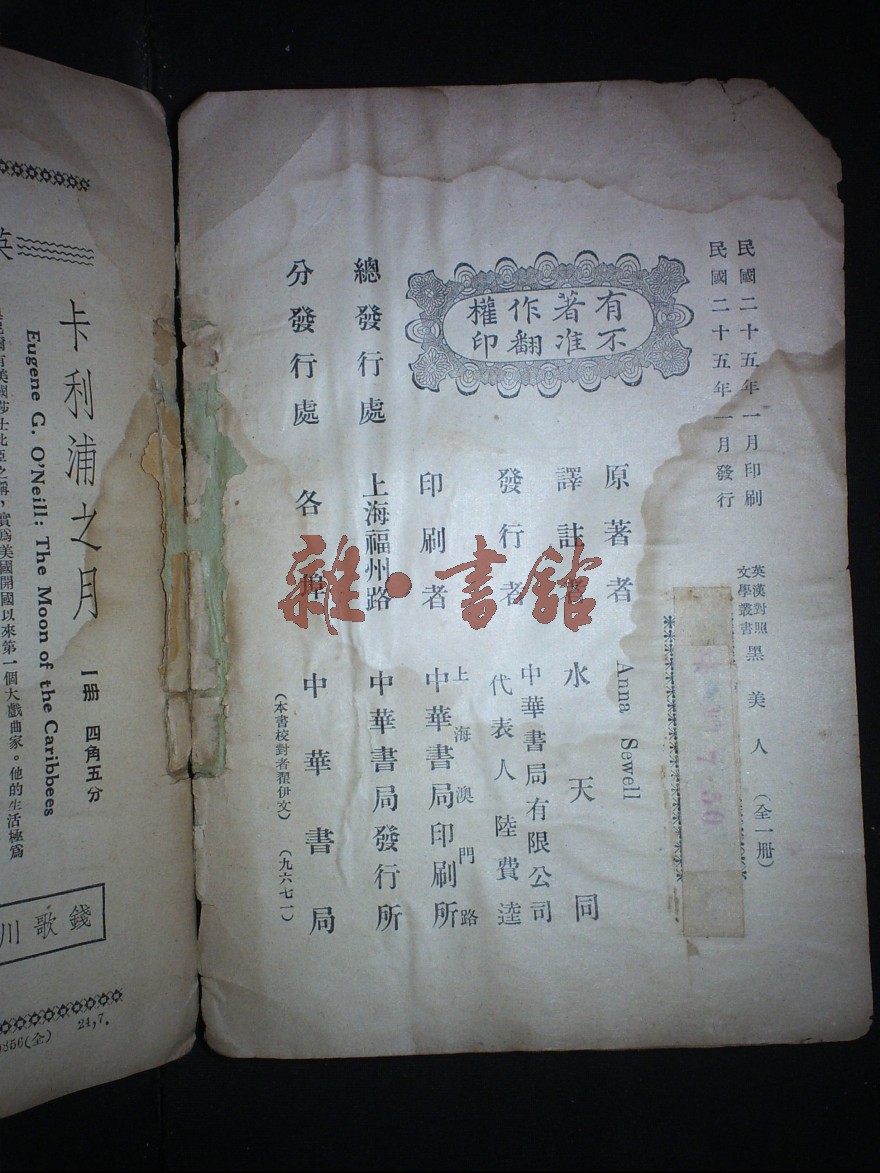 民國二十五年一月印刷
民國二十五年一月發行
英漢對照
文學叢書
黑美人
(全一冊)
有著作權
不准翻印
原著者 Anna Sewell
譯註者 水天同
發行者 中華書局有限公司
代表人 陸費逵
印刷者 上海澳門路
中華書局印刷所
總發行處 上海福州路 中華書局發行所
分發行處 各埠 中華書局
(本書校對者翟伊文)
(九六七一)
雜·書館
英
卡利浦之月
一册 四角五分
Eugene G. O'Neill: The Moon of the Caribbees
有美國莎士比亞之稱,實爲美國開國以來第一個大戲曲家。他的生活極爲
錢歌川
356(全) 24,7.